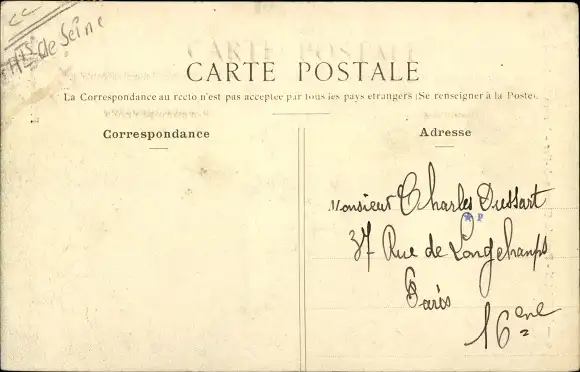 cc
Hts de Seine
CARTE POSTALE
La Correspondance au recto n'est pas acceptée par tous les pays étrangers (Se renseigner à la Poste).
Correspondance
Adresse
Monsieur Charles Dussart
P
37 Rue de Longchamps
Paris
16ème